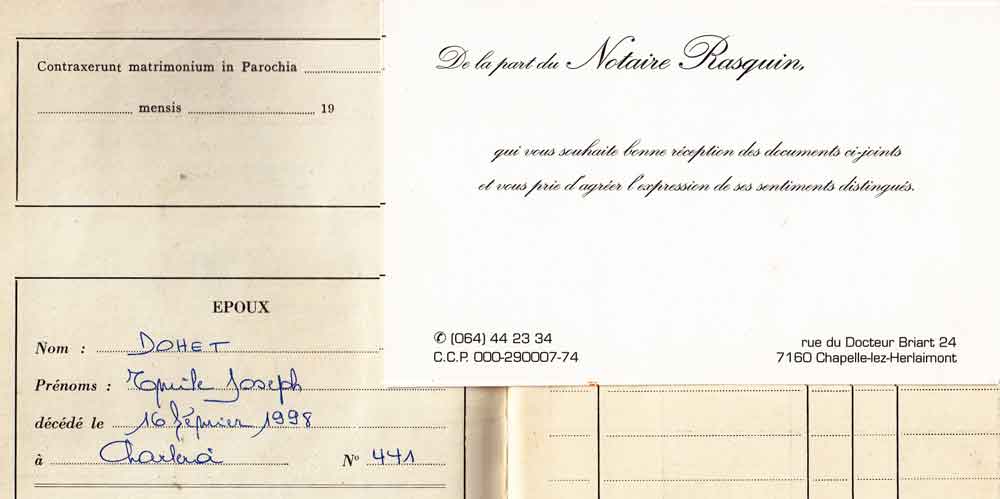 Contraxerunt matrimonium in Parochia
mensis 19
EPOUX
Nom : DOHET
Prénoms : Emile Joseph
décédé le 16 février 1998
à Charleroi N° 441
De la part du Notaire Rasquin,
qui vous souhaite bonne réception des documents ci-joints
et vous prie d'agréer l'expression de ses sentiments distingués.
✆ (064) 44 23 34
C.C.P. 000-290007-74
rue du Docteur Briart 24
7160 Chapelle-lez-Herlaimont